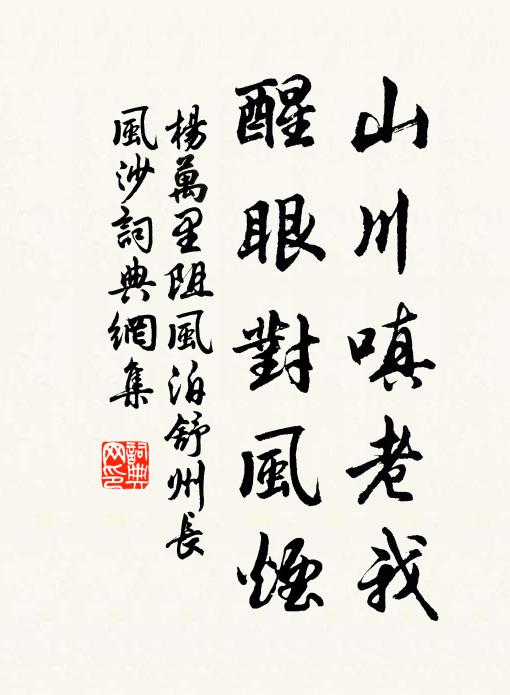 山川嗔老我
醒眼對風煙
楊萬里阻風泊舒州長
風沙詞典網集
詞典網印